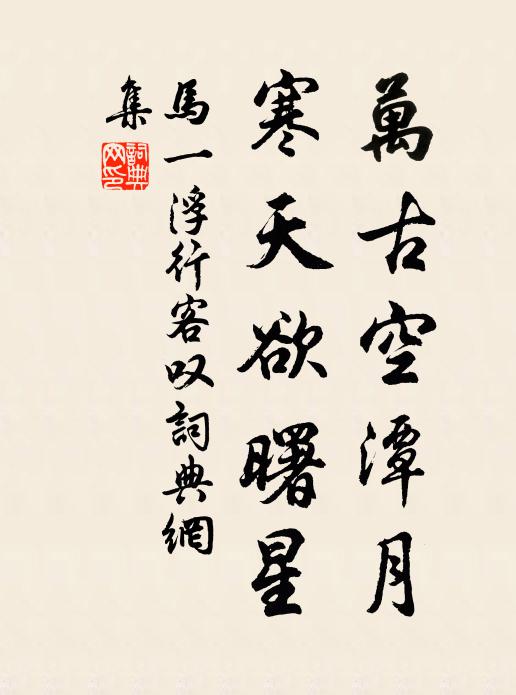 萬古空潭月
寒天欲曙星
馬一浮行客叹詞典網
集
詞典
网印